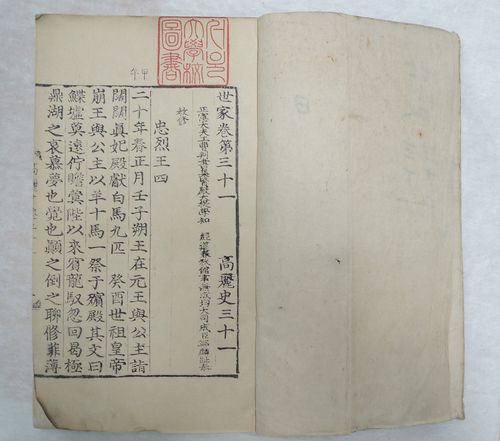 서울
大學校
圖書
甲午
世家卷第三十一 高麗史三十一
正憲大夫工曹判書集賢殿大提學知 經筵春秋館事兼成均大司成臣鄭麟趾奉
敎修
忠烈王四
二十年春正月壬子朔王在元王與公主詣
闊闊眞妃殿獻白馬九匹 癸酉世祖皇帝
崩王與公主以羊十馬一祭于殯殿其文曰
鰈墟奠遠佇瞻蓂陛以來賓龍馭忽回曷極
鼎湖之哀慕夢也覺也顚之倒之聊修菲薄